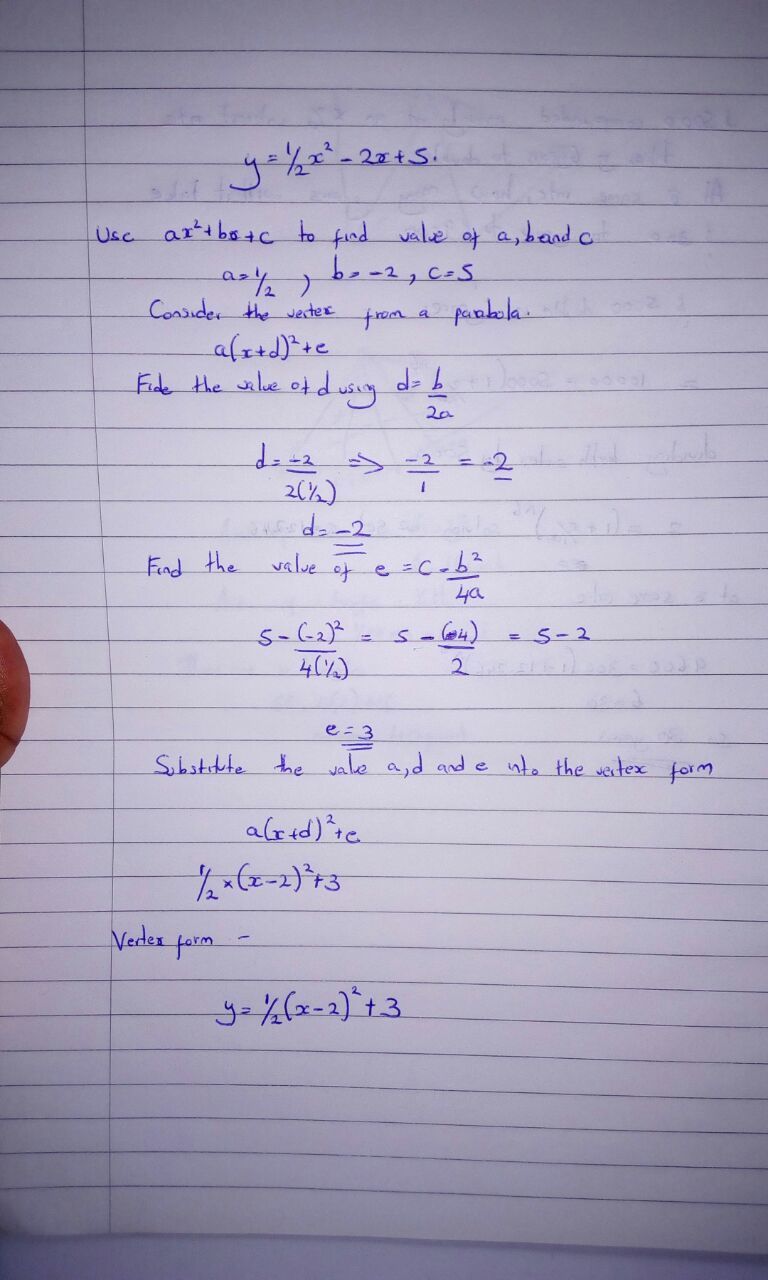 y = 1/2 x² - 2x + 5.
Use ax² + bx + c to find value of a, b and c
a = 1/2 , b = -2 , c = 5
Consider the vertex from a parabola.
a(x+d)² + e
Fide the value of d using d = b/2a
d = -2/2(1/2) => -2/1 = -2
d = -2
Find the value of e = c - b²/4a
5 - (-2)²/4(1/2) = 5 - (4)/2 = 5 - 2
e = 3
Substitute the value a, d and e into the vertex form
a(x+d)² + e
1/2 × (x-2)² + 3
Vertex form -
y = 1/2 (x-2)² + 3